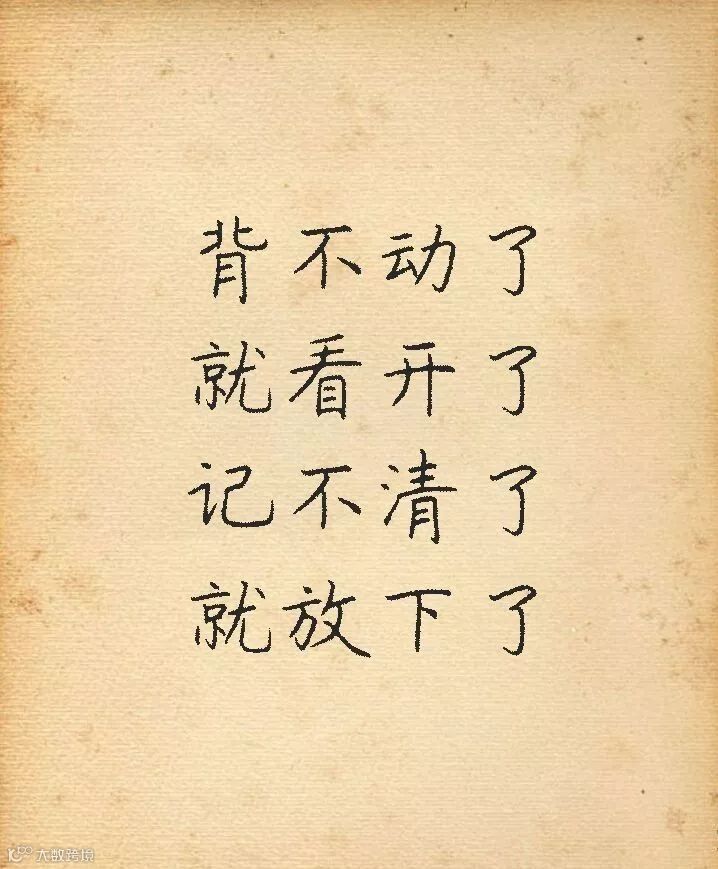 背不动了
就看开了
记不清了
就放下了
大数跨境